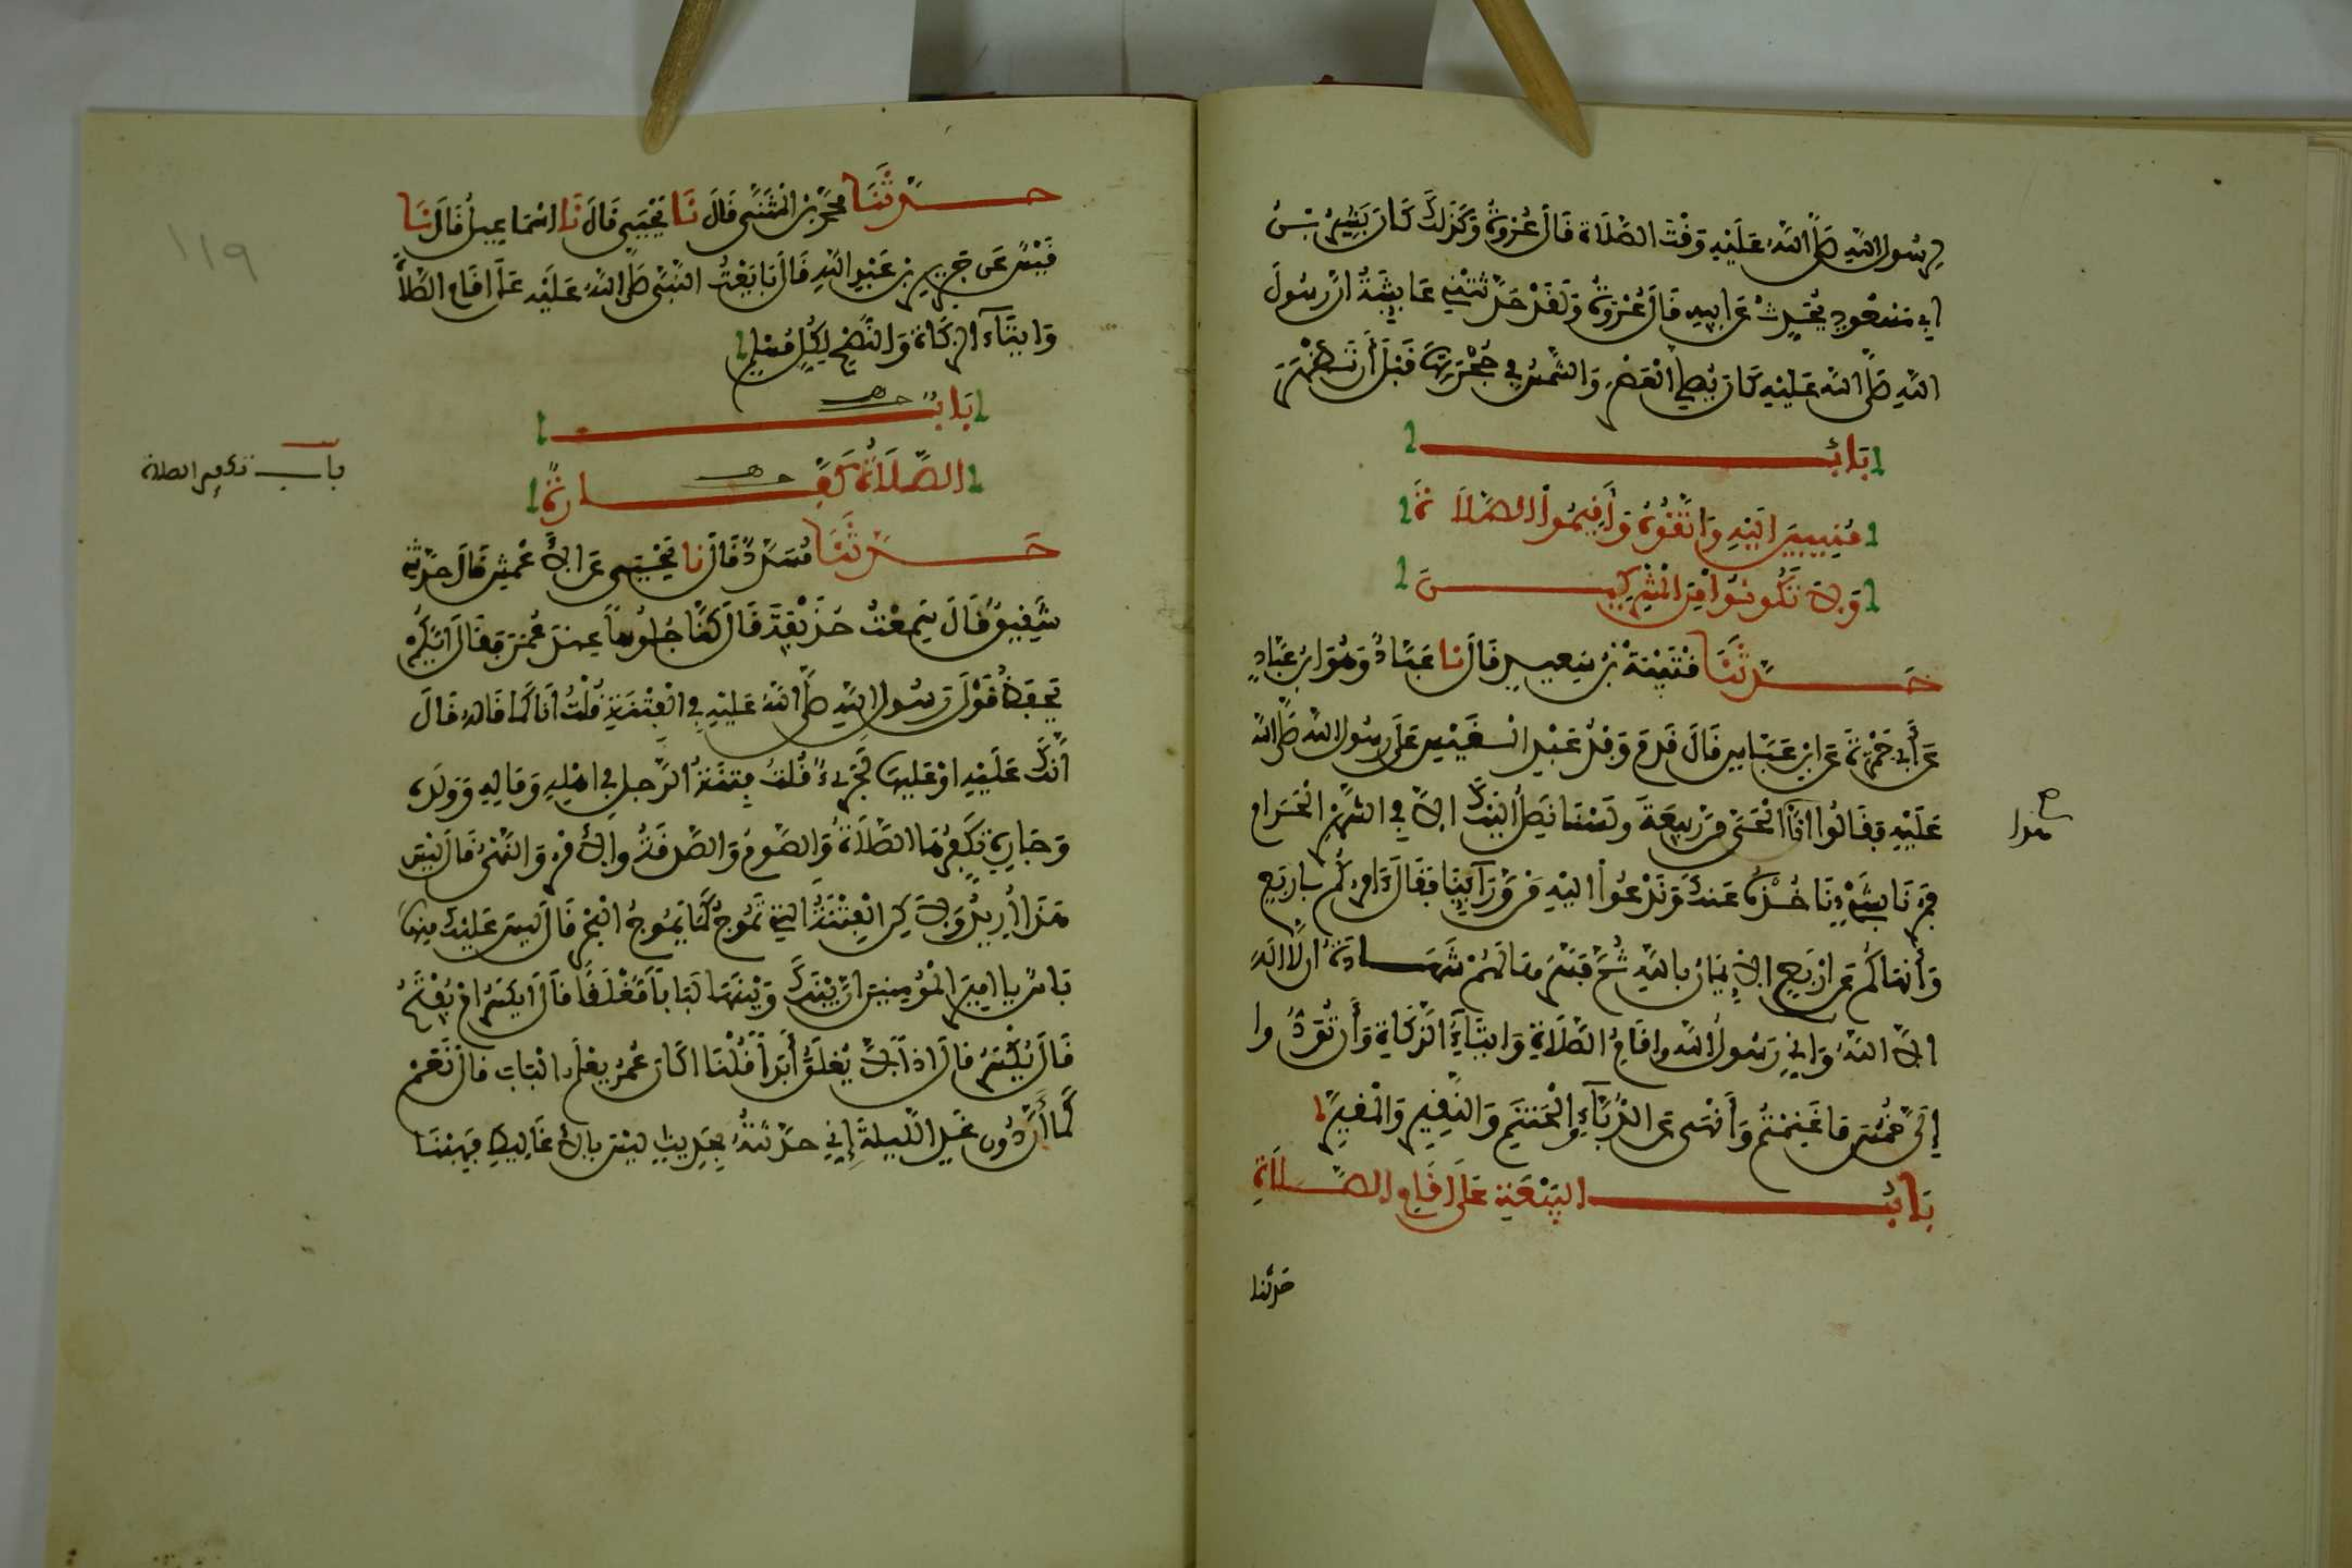 لرسول الله صلى الله عليه وقت الصلاة قال عروة وكذلك كان بشير بن
ابي مسعود يحدث عن ابيه قال عروة ولقد حدثتني عايشة ان رسول
الله صلى الله عليه كان يصلي العصر والشمس في حجرتها قبل أن تظهر
باب
منيبين اليه واتقوه وأقيموا الصلاة
ولا تكونوا من المشركين
حدثنا قتيبة بن سعيد قال نا عباد وهو ابن عباد
عن أبي جمرة عن ابن عباس قال قدم وفد عبد القيس على رسول الله صلى الله
عليه فقالوا انا الحي من ربيعة ولسنا نصل اليك الا في الشهر الحرام
هذا
فمرنا بشيء ناخذه عنك وندعوا اليه من ورآينا فقال ءامركم باربع
وأنهاكم عن اربع الإيمان بالله ثم فسر ها لهم شهادة ان لا اله
الا الله وأني رسول الله وإقام الصلاة وايتآء الزكاة وأن تؤدوا
إلي خمس ما غنمتم وأنهى عن الدبآء والحنتم والنقير والمقير
باب البيعة على اقام الصلاة
حدثنا
١١٩
حدثنا محمد بن المثنى قال نا يحيى قال نا اسماعيل قال نا
قيس عن جرير بن عبد الله قال بايعت النبي صلى الله عليه على اقام الصلاة
وايتآء الزكاة والنصح لكل مسلم
باب
الصلاة كفارة
باب تكفير الصلاة
حدثنا مسدد قال نا يحيى عن الأعمش قال حدثني
شقيق قال سمعت حذيفة قال كنا جلوسا عند عمر فقال ايكم
يحفظ قول رسول الله صلى الله عليه في الفتنة قلت انا كما قاله قال
انك عليه او عليها لجريء قلت فتنة الرجل في اهله وماله وولده
وجاره تكفرها الصلاة والصوم والصدقة والأمر والنهي قال ليس
هذا أريد ولاكن الفتنة التي تموج كما يموج البحر قال ليس عليك منها
باس يا امير المومنين ان بينك وبينها لبابا مغلقا قال ايكسر ام يفتح
قال يكسر قال اذا لا يغلق أبدا قلنا اكان عمر يعلم الباب قال نعم
كما أن دون غد الليلة إني حدثته بحديث ليس بالأغاليط فهبنا